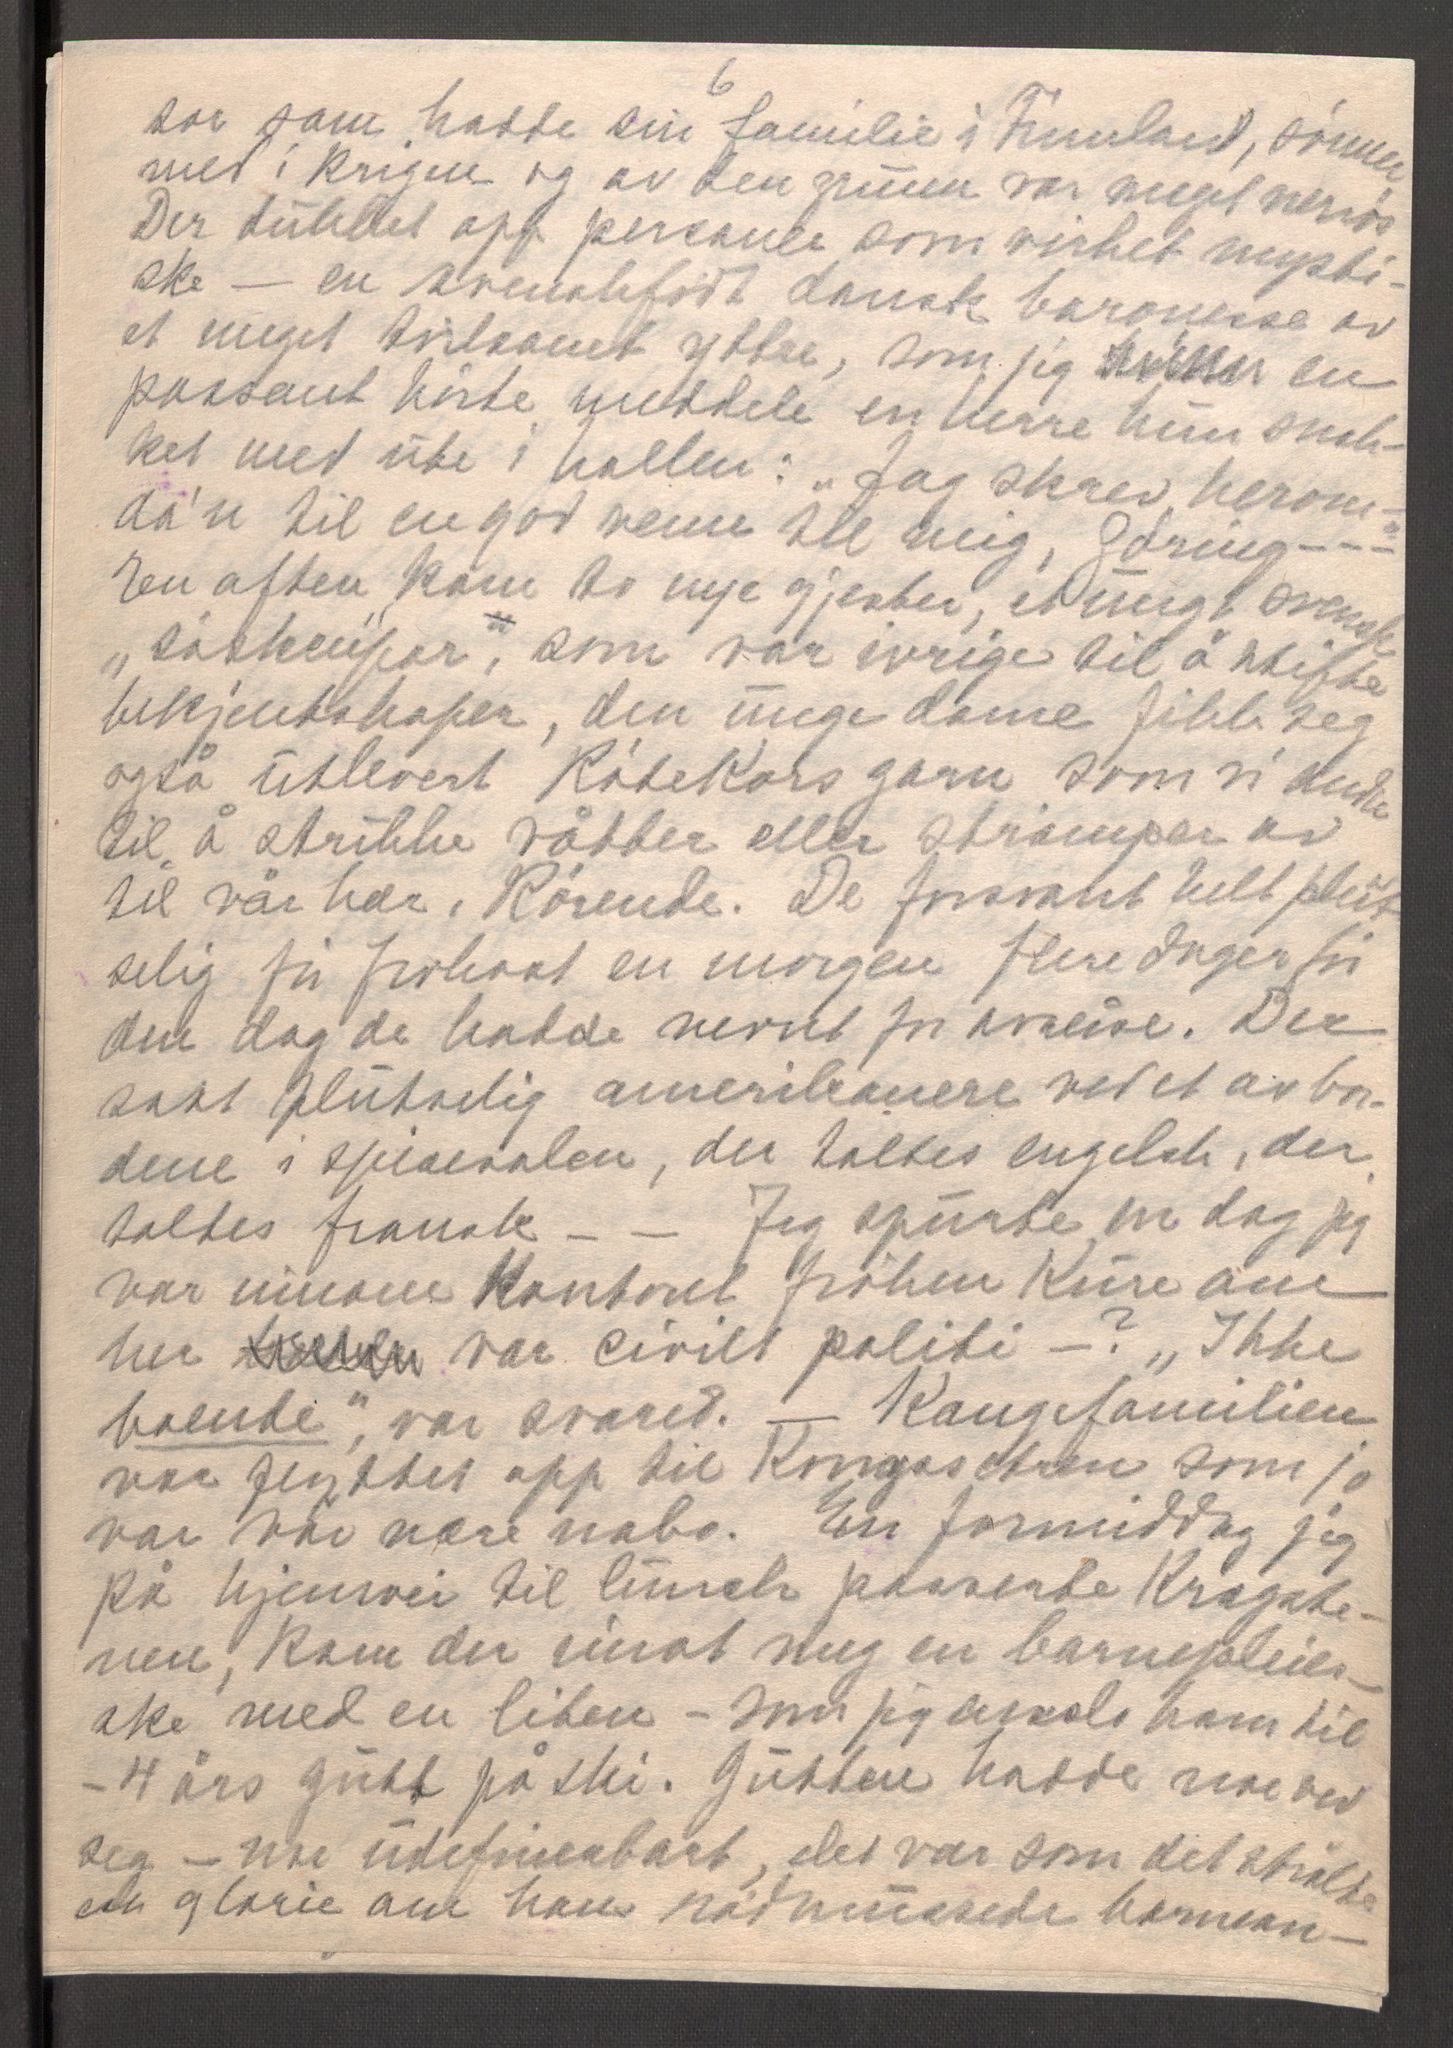 6
sor som hadde sin familie i Finnland, sønnen
med i krigen og av den grunn var meget nervøs
Der dukket opp personer som virket mysti-
ske — en svenskfødt dansk baronesse av
et meget tvilsomt ydtre, som jeg en
passant hørte meddele en herre hun snak-
ket med ute i hallen: „Jag skrev herom-
da'n til en god venn till mig, Göring - - -"
En aften kom to nye gjester, et ungt svensk
„søskenpar", som var ivrige til å stifte
bekjentskaper, den unge dame fikk seg
også utlevert Rødekors garn som vi andre
til å strikke våtter eller strømper av
til vår hær. Rørende. De forsvant helt plut-
selig før frokost en morgen flere dager før
den dag de hadde nevnt for avreise. Der
satt plutselig amerikanere ved et av bor-
dene i spisesalen, der taltes engelsk, der
taltes fransk — — Jeg spurte en dag jeg
var innom kontoret frøken Kure om
her var civilt politi —? „Ikke
boende", var svaret. — Kongefamilien
var flyttet opp til Kongssetren som jo
var vår nære nabo. En formiddag jeg
på hjemvei til lunsch passerte Kragste-
nen, kom der imot meg en barnepleier-
ske med en liten – som jeg anslo ham til
– 4 års gutt på ski. Gutten hadde noe ved
seg — noe udefinerbart, det var som det strålte
en glorie om hans rødmussede barnean-